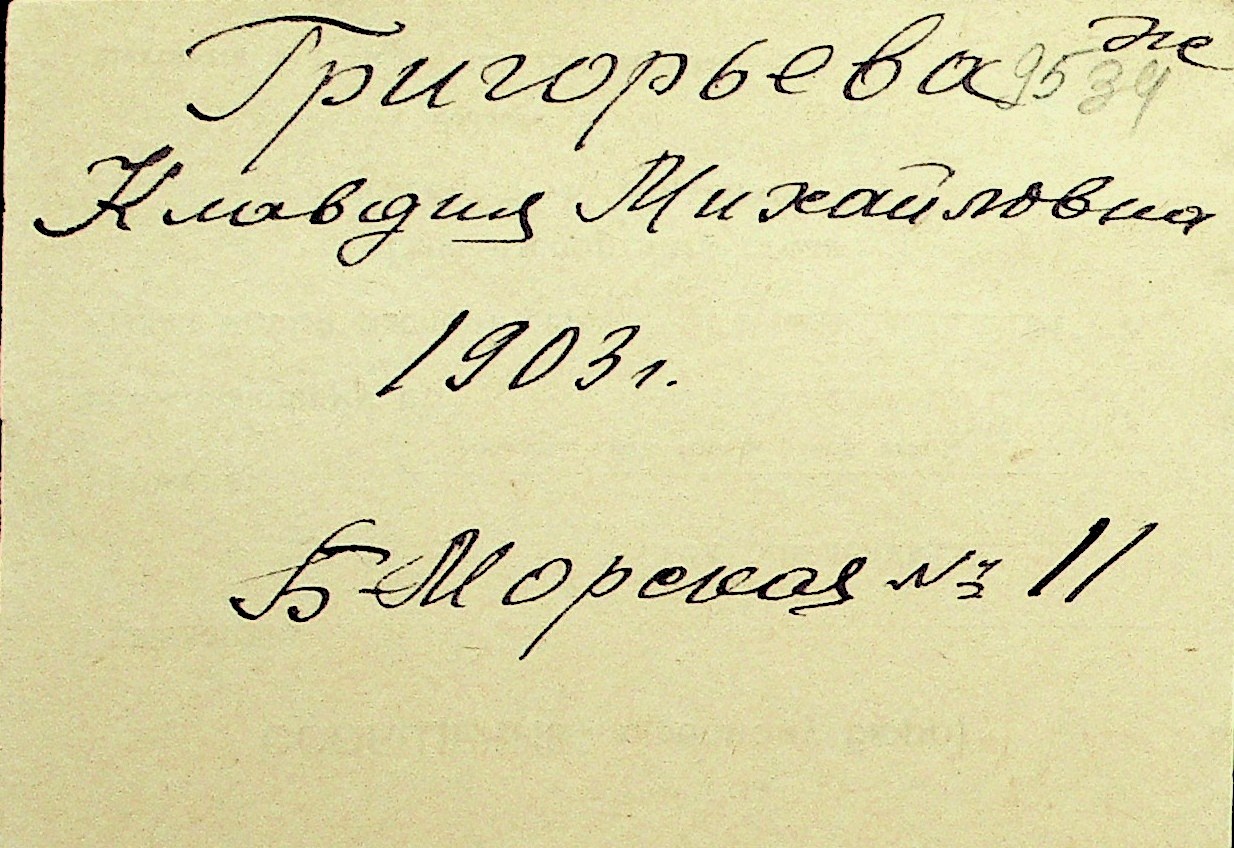 Григорьева
9534
Клавдия Михайловна
1903 г.
Б-Морская № 11